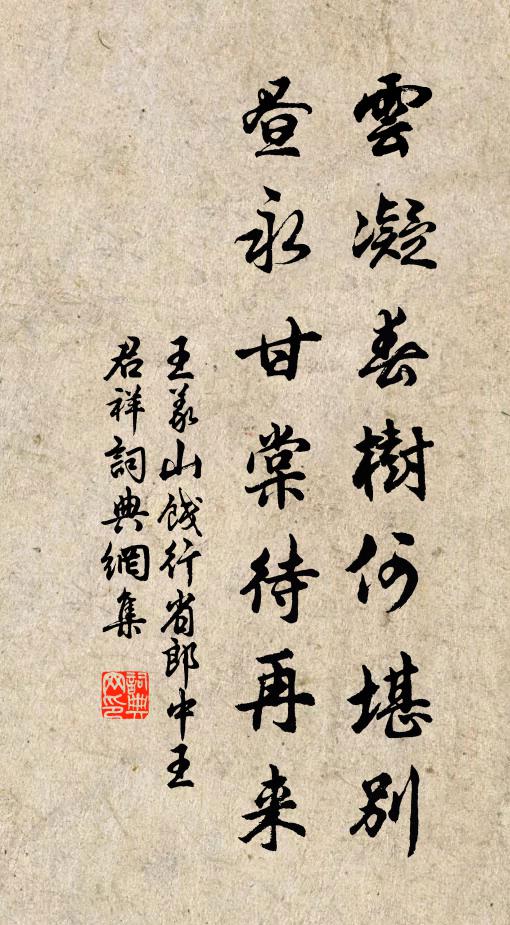 雲凝春樹何堪別
昼永甘棠待再来
王義山餞行省郎中王
君祥詞典網集
詞典网印